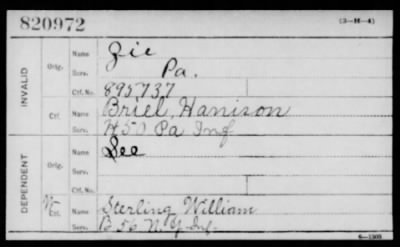 820972
(3-H-4)
INVALID
Orig.
Name Zie
Serv. Pa.
Ctf. No. 895737
Ctf.
Name Briel, Harrison
Serv. H 50 Pa Inf
DEPENDENT
Orig.
Name See
Serv.
Ctf. No.
W Ctf.
Name Sterling William
Serv. B 56 N.Y. Inf.
6-1303